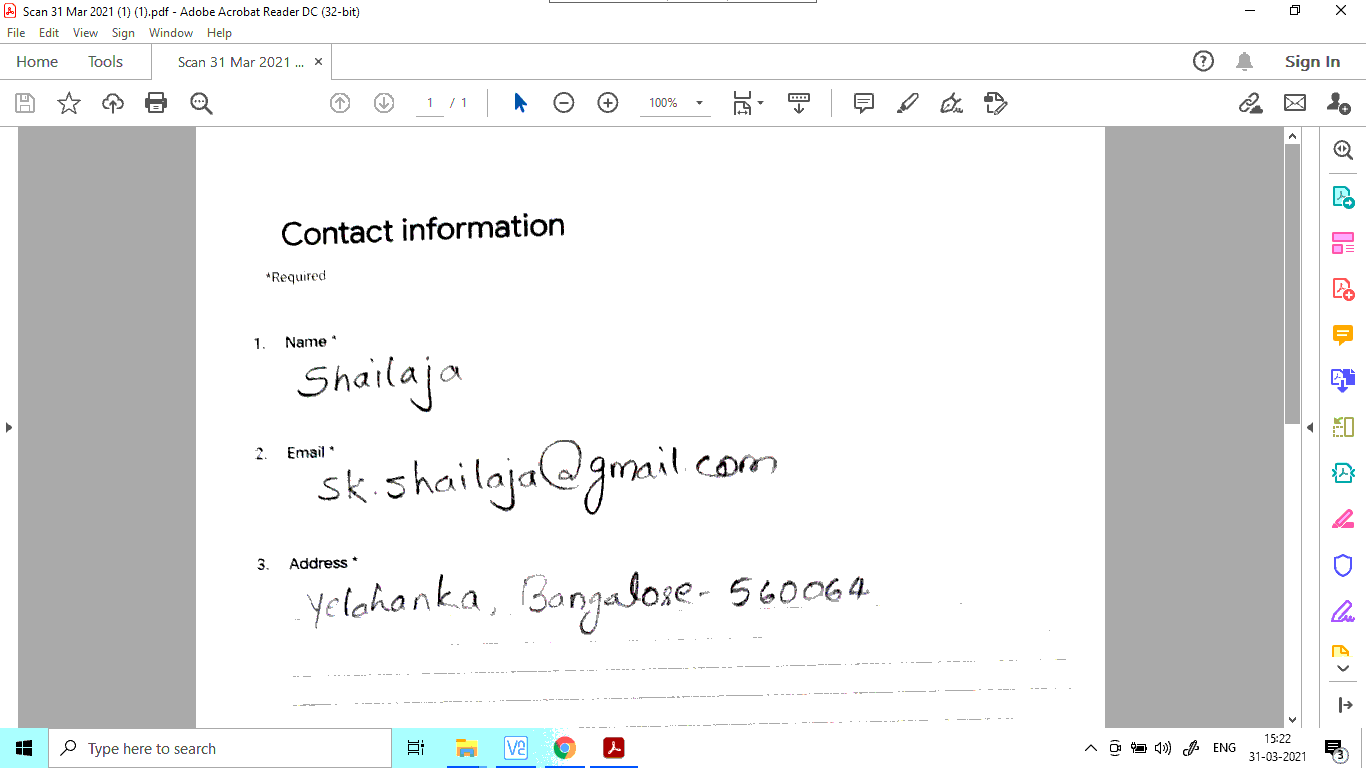 Scan 31 Mar 2021 (1) (1).pdf - Adobe Acrobat Reader DC (32-bit)
File Edit View Sign Window Help
Home Tools Scan 31 Mar 2021 ... × Sign In
1 / 1 100%
Contact information
*Required
1. Name *
Shailaja
2. Email *
sk.shailaja@gmail.com
3. Address *
Yelahanka, Bangalore - 560064
Type here to search
ENG 15:22
31-03-2021
3